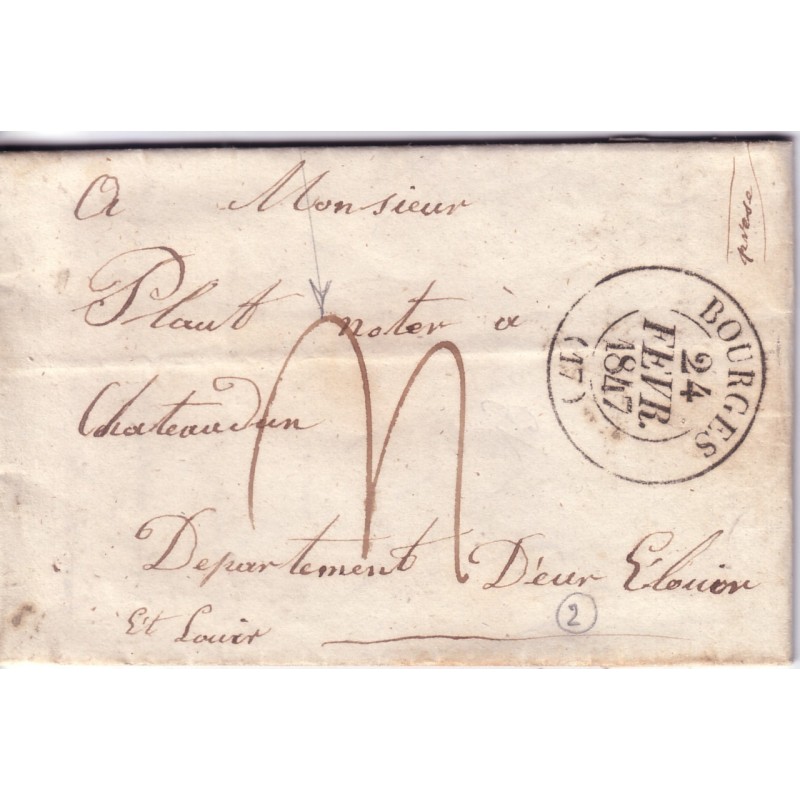 A Monsieur
Plaut noter à
Chateaudun
Departement D'eur Élouor
Et Louir
BOURGES
24
FEVR.
1847
(17)
2